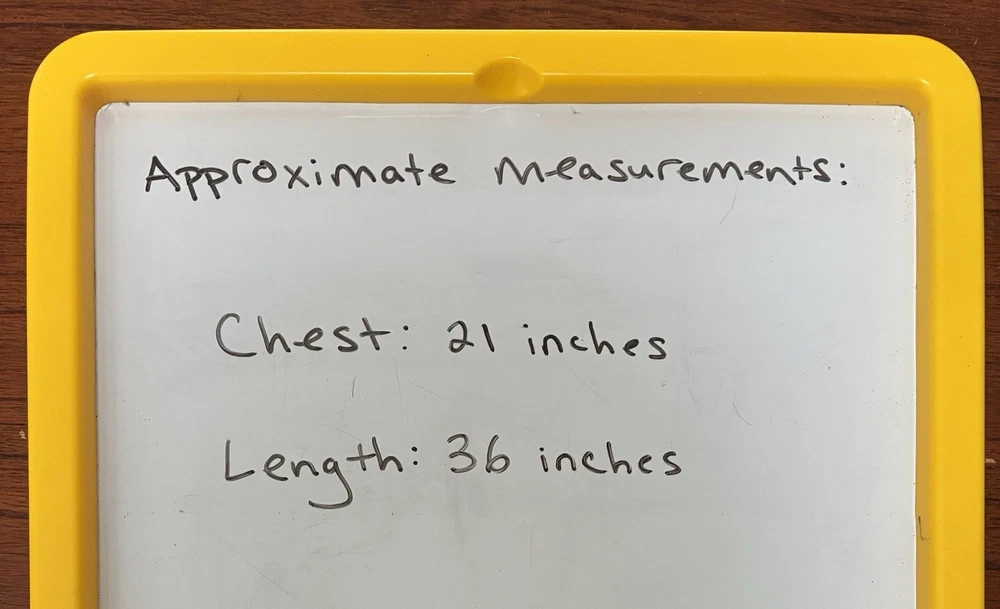 Approximate measurements:
Chest: 21 inches
Length: 36 inches